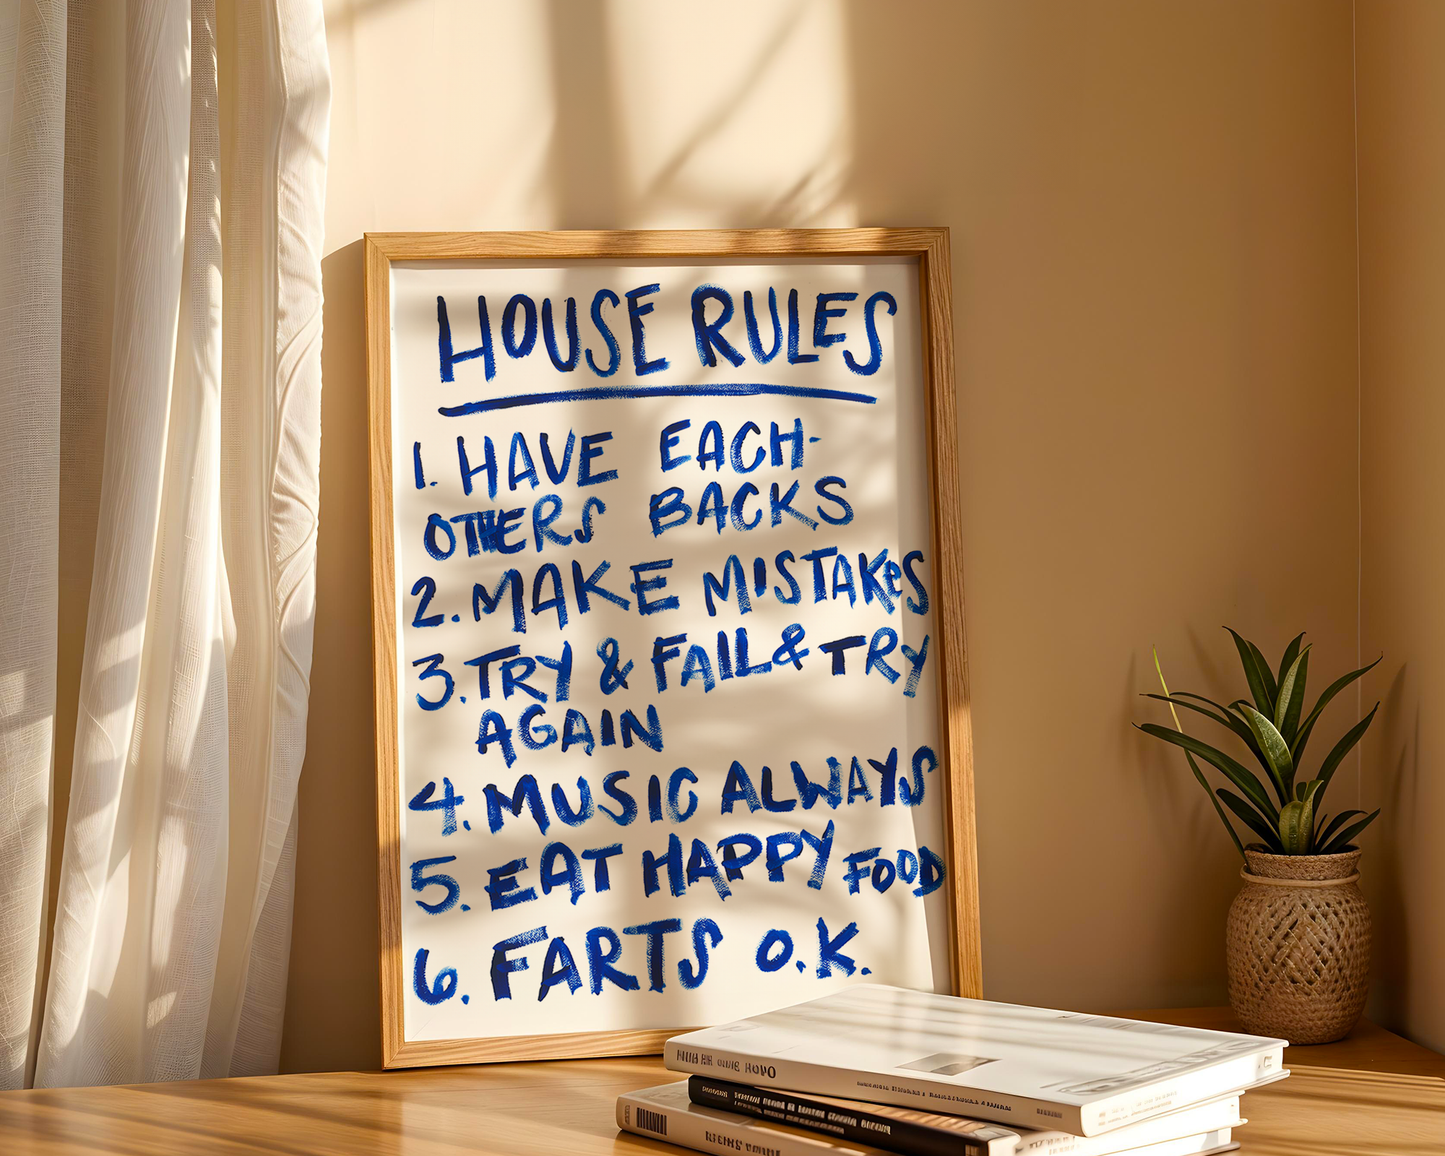 HOUSE RULES
1. HAVE EACH-
OTHERS BACKS
2. MAKE MISTAKES
3. TRY & FAIL & TRY
AGAIN
4. MUSIC ALWAYS
5. EAT HAPPY FOOD
6. FARTS O.K.